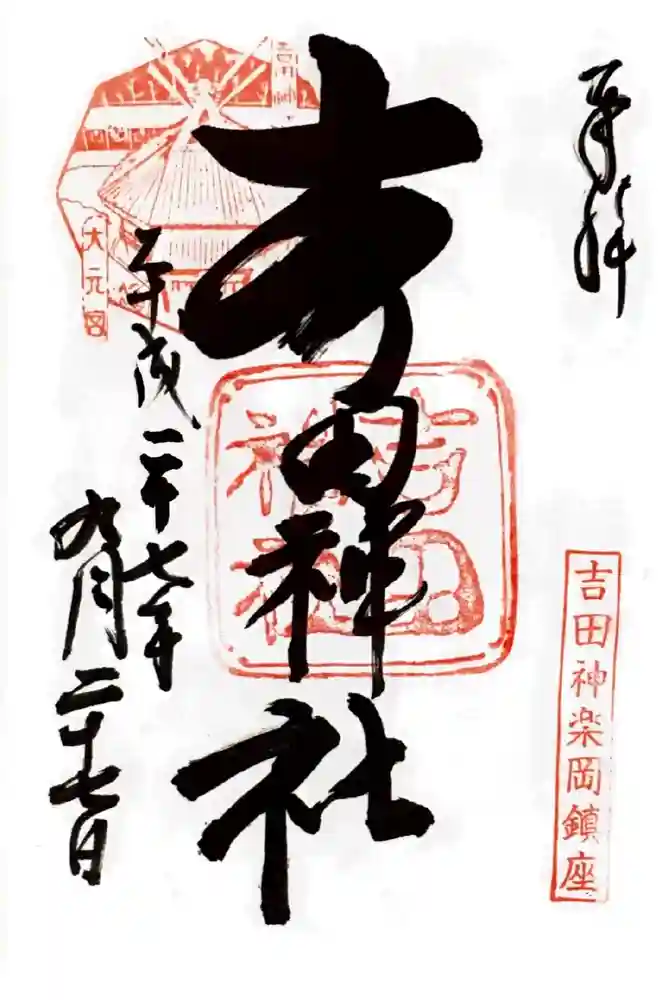 奉拝
吉田神楽岡鎮座
吉田神社
吉田
神社
吉田神社
大元宮
平成二十七年
九月二十七日